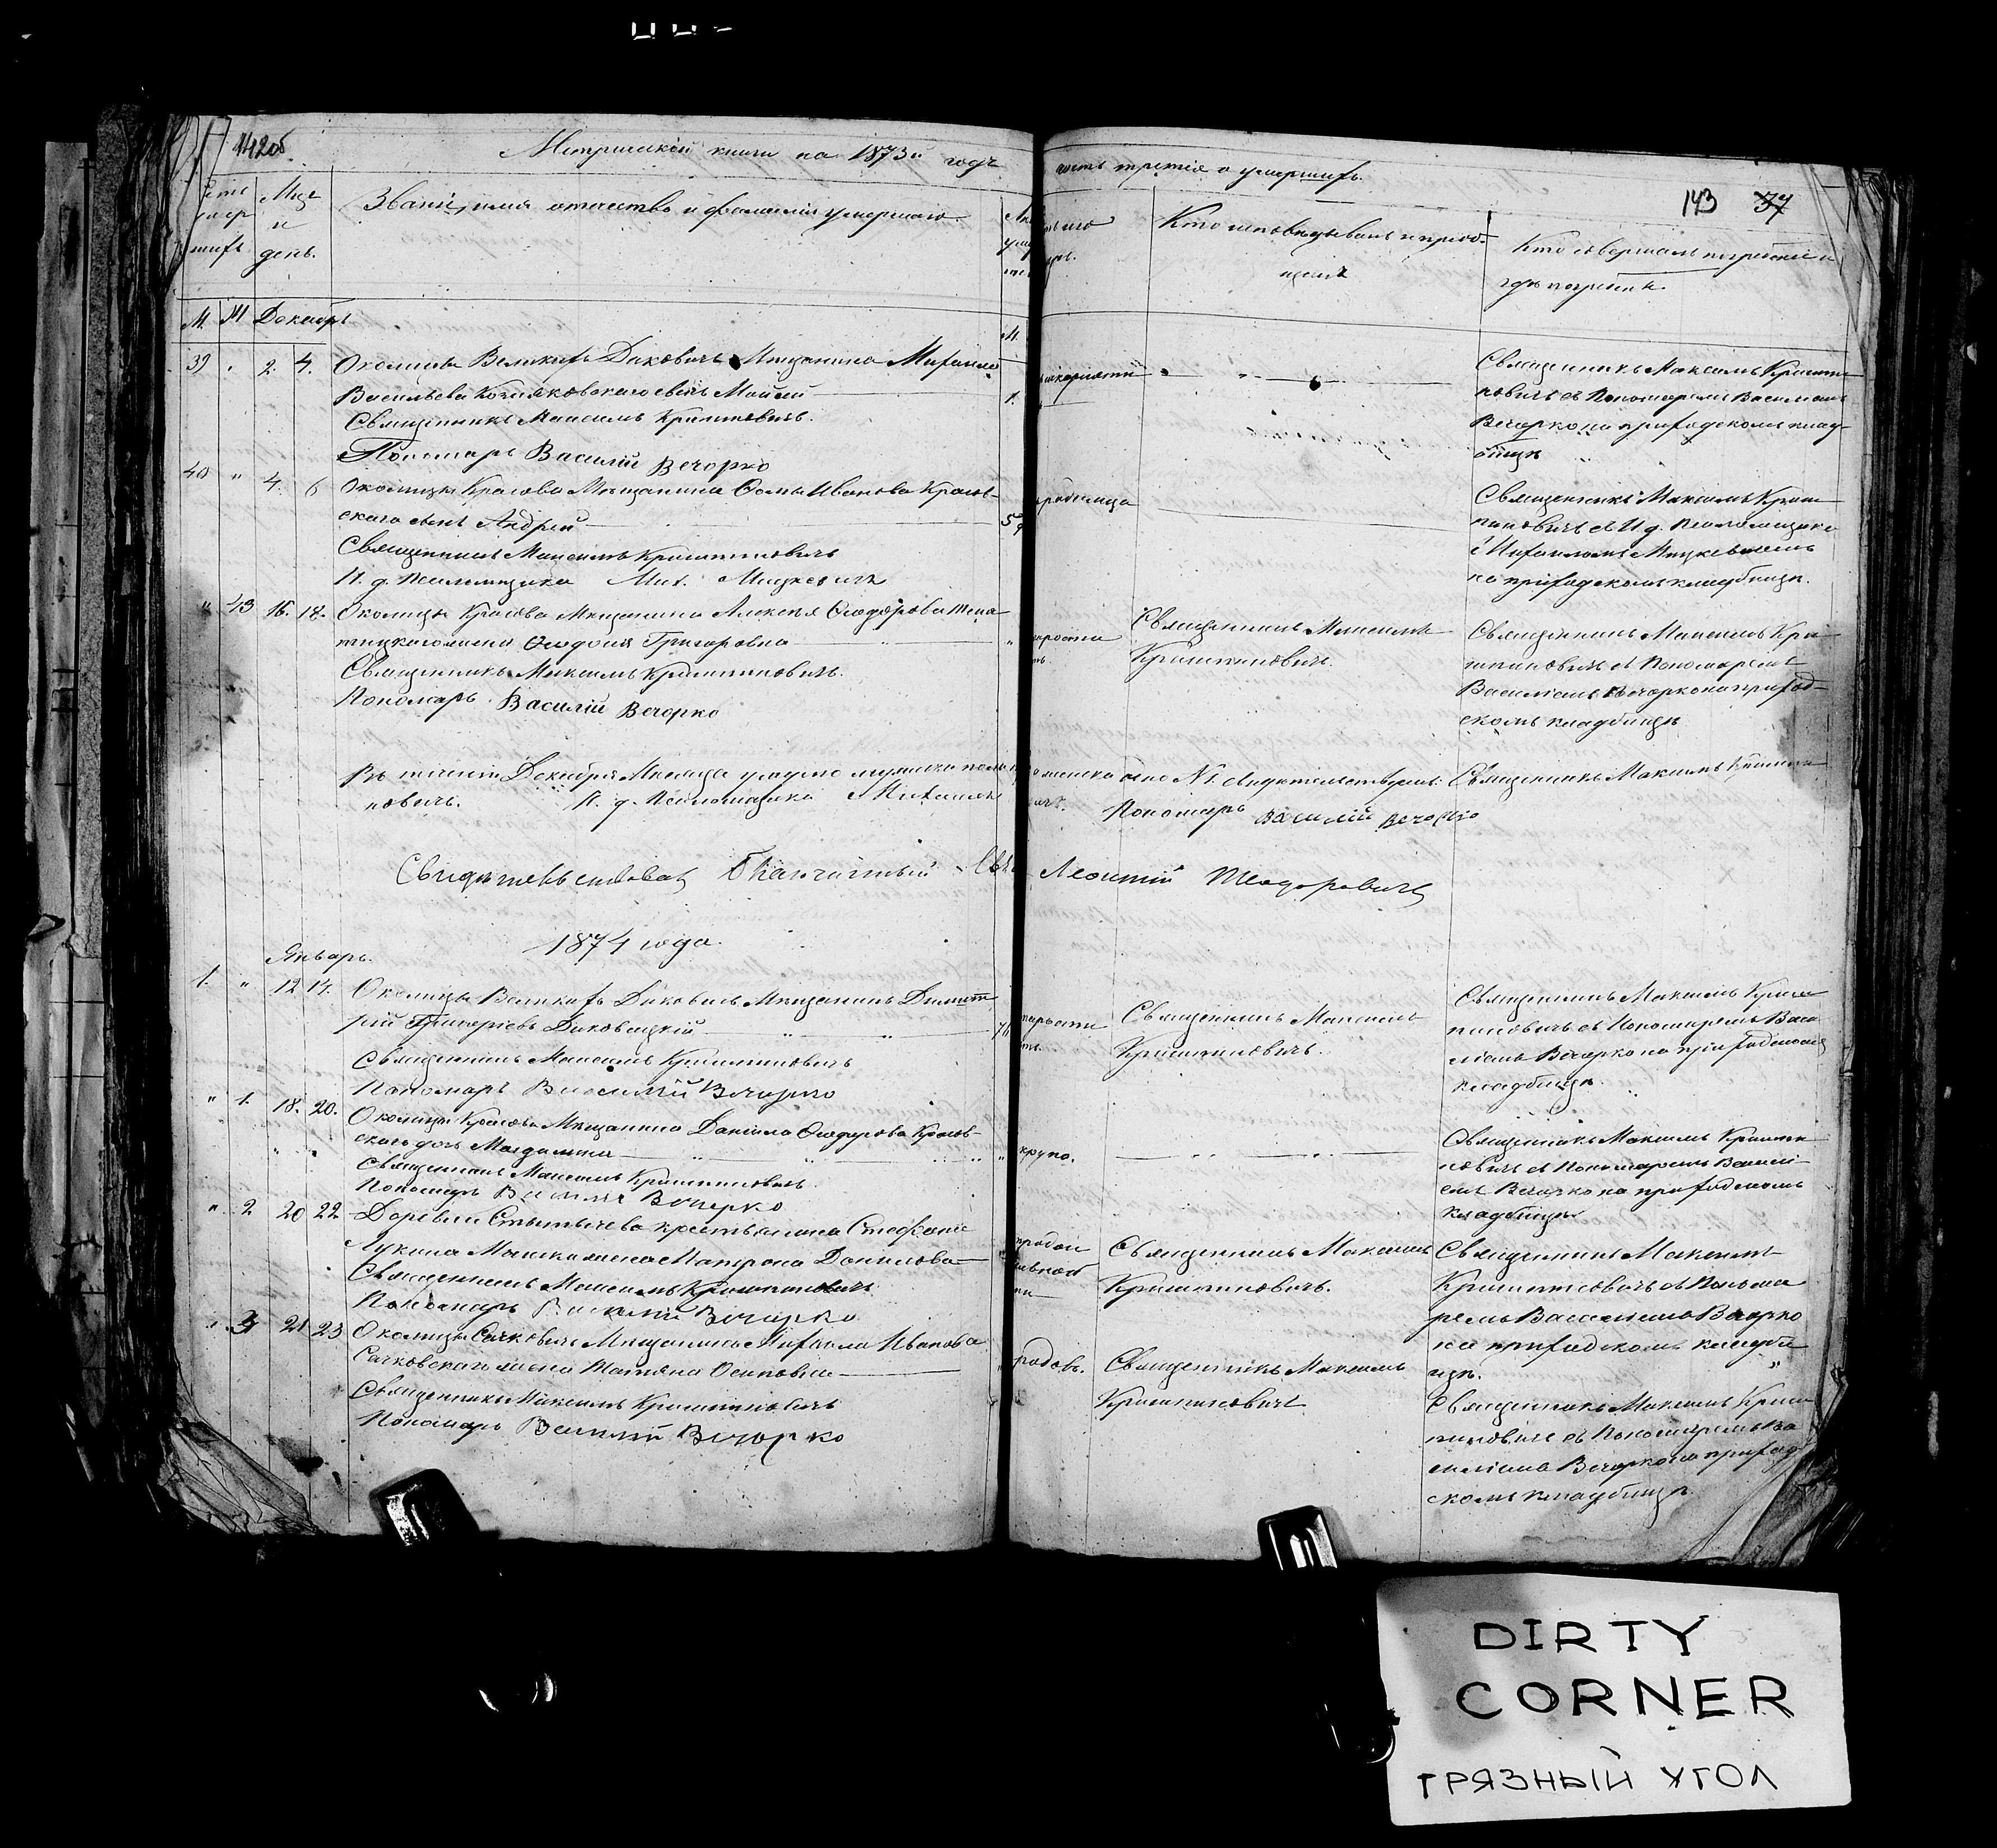 142об.
Метрической книги на 1873й годъ
часть третія о умершихъ.
143 37
Мцъ
и
день.
Званіе, имя отчество и фамилія умершаго
Кто исповѣдывалъ и пріоб-
щалъ
Кто совершалъ погребеніе и
гдѣ погребены.
М. Декабрь
М.
39 " 2. 4. Околицы Великихъ Диковичъ Мѣщанина Михаила
Васильева сынъ Моисей
1.
Священникъ Максимъ Криштиновичъ.
Пономарь Василій Вечорко
Священникъ Максимъ Кришти-
новичъ съ Пономаремъ Василіемъ
Вечорко на приходскомъ клад-
бищѣ
40 " 4. 6 Околицы Красова Мѣщанина Ѳомы Иванова Красов-
скаго сынъ Андрей
Священникъ Максимъ Криштиновичъ
И. д. Псаломщика Мих. Мицкевичъ
родимца
Священникъ Максимъ Кришти-
новичъ съ И. д. Псаломщика
Михаиломъ Мицкевичемъ
на приходскомъ кладбищѣ.
" 43 16. 18. Околицы Красова Мѣщанина Алексѣя Ѳеодорова
жена Ѳеодосія Григорова
Священникъ Максимъ Криштиновичъ.
Пономарь Василій Вечорко
Священникъ Максимъ
Криштиновичъ.
Священникъ Максимъ Кри-
штиновичъ съ Пономаремъ
Василіемъ Вечорко на приход-
скомъ кладбищѣ
Въ теченіи Декабря Мѣсяца умерло мужеска пола
женска одно № 1. Свидѣтельствуемъ: Священникъ Максимъ Кришти-
новичъ. И. д. Псаломщика Михаилъ
Пономарь Василій Вечорко
Свидѣтельствовалъ Благочинный Леонтій Теодоровичъ
1874 года.
Январь.
1. " 12 14. Околицы Великихъ Диковичъ Мѣщанинъ Димит-
рій Григорьевъ Диковицкій
Священникъ Максимъ Криштиновичъ
Пономарь Василій Вечорко
Священникъ Максимъ
Криштиновичъ.
Священникъ Максимъ Кришти-
новичъ съ Пономаремъ Васи-
ліемъ Вечорко на приходскомъ
кладбищѣ.
" 1. 18. 20. Околицы Красова Мѣщанина Даніила Ѳеодорова Красов-
скаго дочь Магдалина
Священникъ Максимъ Криштиновичъ.
Пономарь Василій Вечорко
крупо.
Священникъ Максимъ Кришти-
новичъ съ Пономаремъ Василі-
емъ Вечорко на приходскомъ
кладбищѣ
" 2 20 22 Деревни Стытычева крестьянина Стефана
Лукина жена Матрона Данилова
Священникъ Максимъ Криштиновичъ
Пономарь Василій Вечорко
Священникъ Максимъ
Криштиновичъ.
Священникъ Максимъ
Криштиновичъ съ Понома-
ремъ Василіемъ Вечорко
на приходскомъ кладби-
щѣ.
" 3 21 23 Околицы Сачковичъ Мѣщанина Михаила Иванова
Сачковскаго жена Татьяна Осипова
Священникъ Максимъ Криштиновичъ
Пономарь Василій Вечорко
родовъ.
Священникъ Максимъ
Криштиновичъ
Священникъ Максимъ Кришти-
новичъ съ Пономаремъ Ва-
силіемъ Вечорко на приход-
скомъ кладбищѣ.
DIRTY
CORNER
ГРЯЗНЫЙ УГОЛ